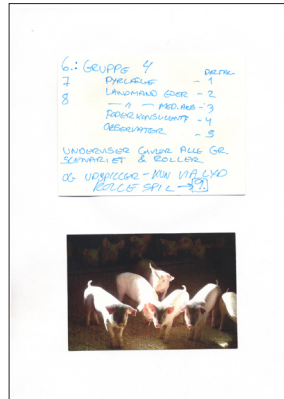 6.: GRUPPE 4 DELTAG.
7 DYRLÆGE - 1
8 LANDMAND EJER - 2
— 〃 — MED.ARB - 3
FODERKONSULENT - 4
OBSERVATØR - 5
UNDERVISER GIVER ALLE GR.
SCENARIET & ROLLER
OG UDSPILLER - KUN VIA LYD
ROLLE SPIL → 9.